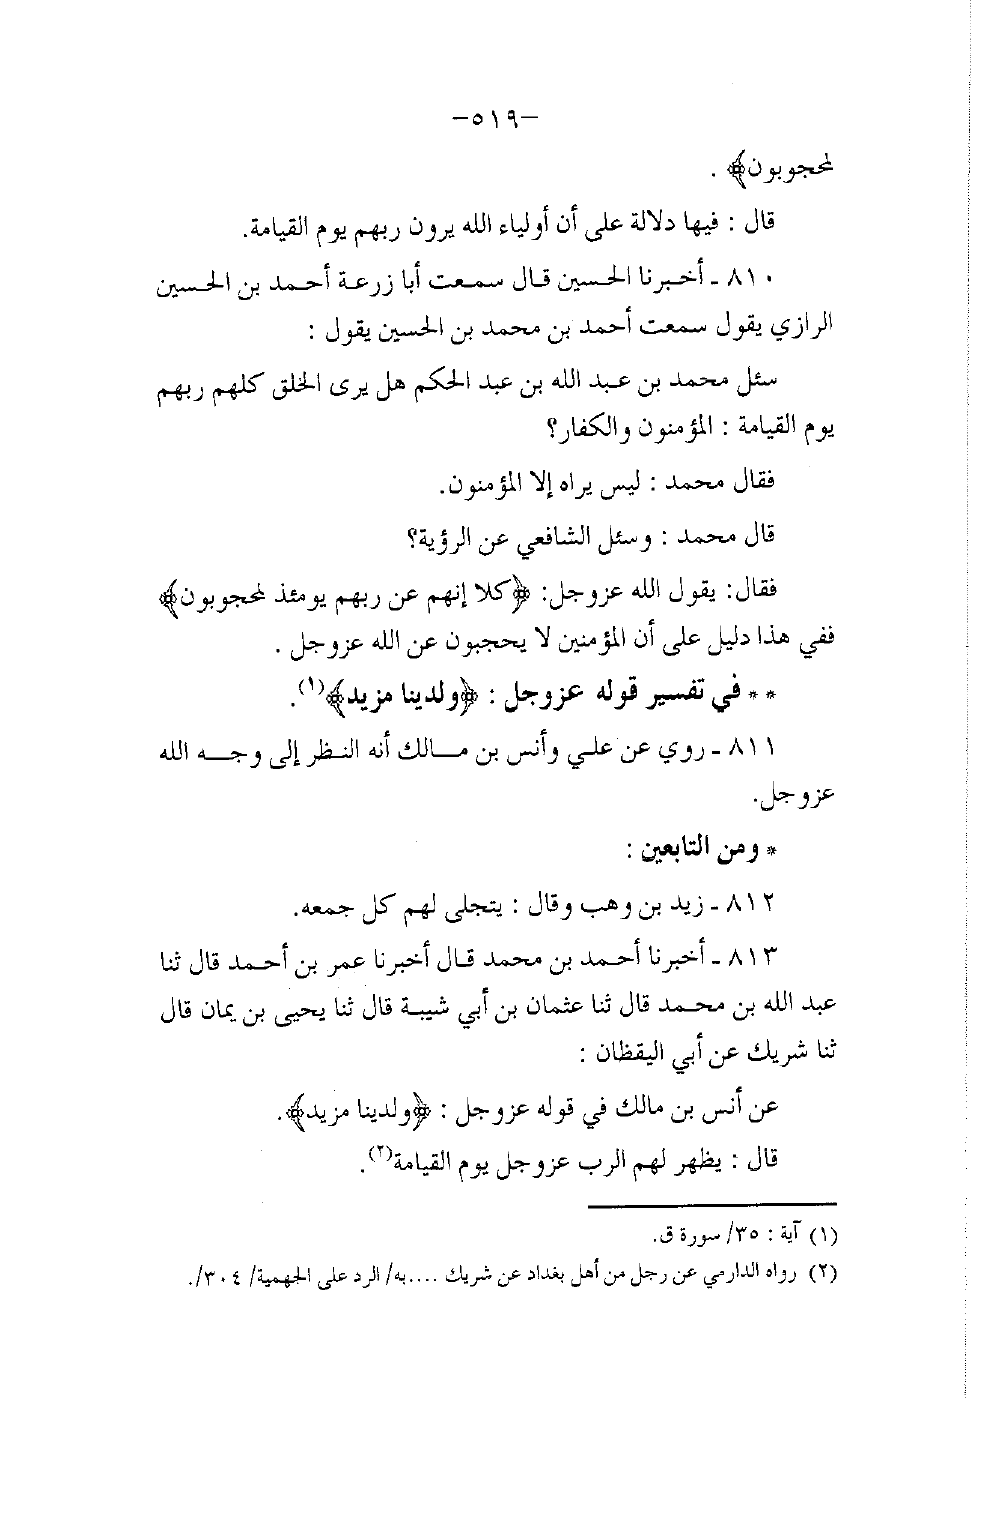 -٥١٩-
لمحجوبون﴾ .
قال : فيها دلالة على أن أولياء الله يرون ربهم يوم القيامة.
٨١٠ ـ أخبرنا الحسين قال سمعت أبا زرعة أحمد بن الحسين
الرازي يقول سمعت أحمد بن محمد بن الحسين يقول :
سئل محمد بن عبد الله بن عبد الحكم هل يرى الخلق كلهم ربهم
يوم القيامة : المؤمنون والكفار؟
فقال محمد : ليس يراه إلا المؤمنون.
قال محمد : وسئل الشافعي عن الرؤية؟
فقال: يقول الله عزوجل: ﴿كلا إنهم عن ربهم يومئذ لمحجوبون﴾
ففي هذا دليل على أن المؤمنين لا يحجبون عن الله عزوجل .
** في تفسير قوله عزوجل : ﴿ولدينا مزيد﴾(١).
٨١١ ـ روي عن علي وأنس بن مالك أنه النظر إلى وجه الله
عزوجل.
* ومن التابعين :
٨١٢ ـ زيد بن وهب وقال : يتجلى لهم كل جمعه.
٨١٣ ـ أخبرنا أحمد بن محمد قال أخبرنا عمر بن أحمد قال ثنا
عبد الله بن محمد قال ثنا عثمان بن أبي شيبة قال ثنا يحيى بن يمان قال
ثنا شريك عن أبي اليقظان :
عن أنس بن مالك في قوله عزوجل : ﴿ولدينا مزيد﴾.
قال : يظهر لهم الرب عزوجل يوم القيامة(٢).
(١) آية : ٣٥/ سورة ق.
(٢) رواه الدارمي عن رجل من أهل بغداد عن شريك ....به/ الرد على الجهمية/ ٣٠٤/.